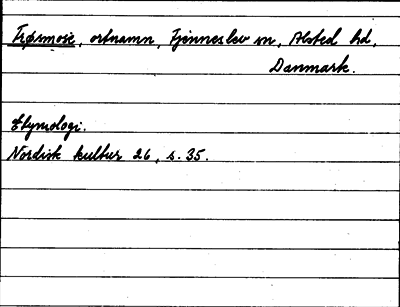 Frøsmose, ortnamn, Fjenneslev sn, Alsted hd,
Danmark.
Etymologi.
Nordisk kultur 26, s. 35.